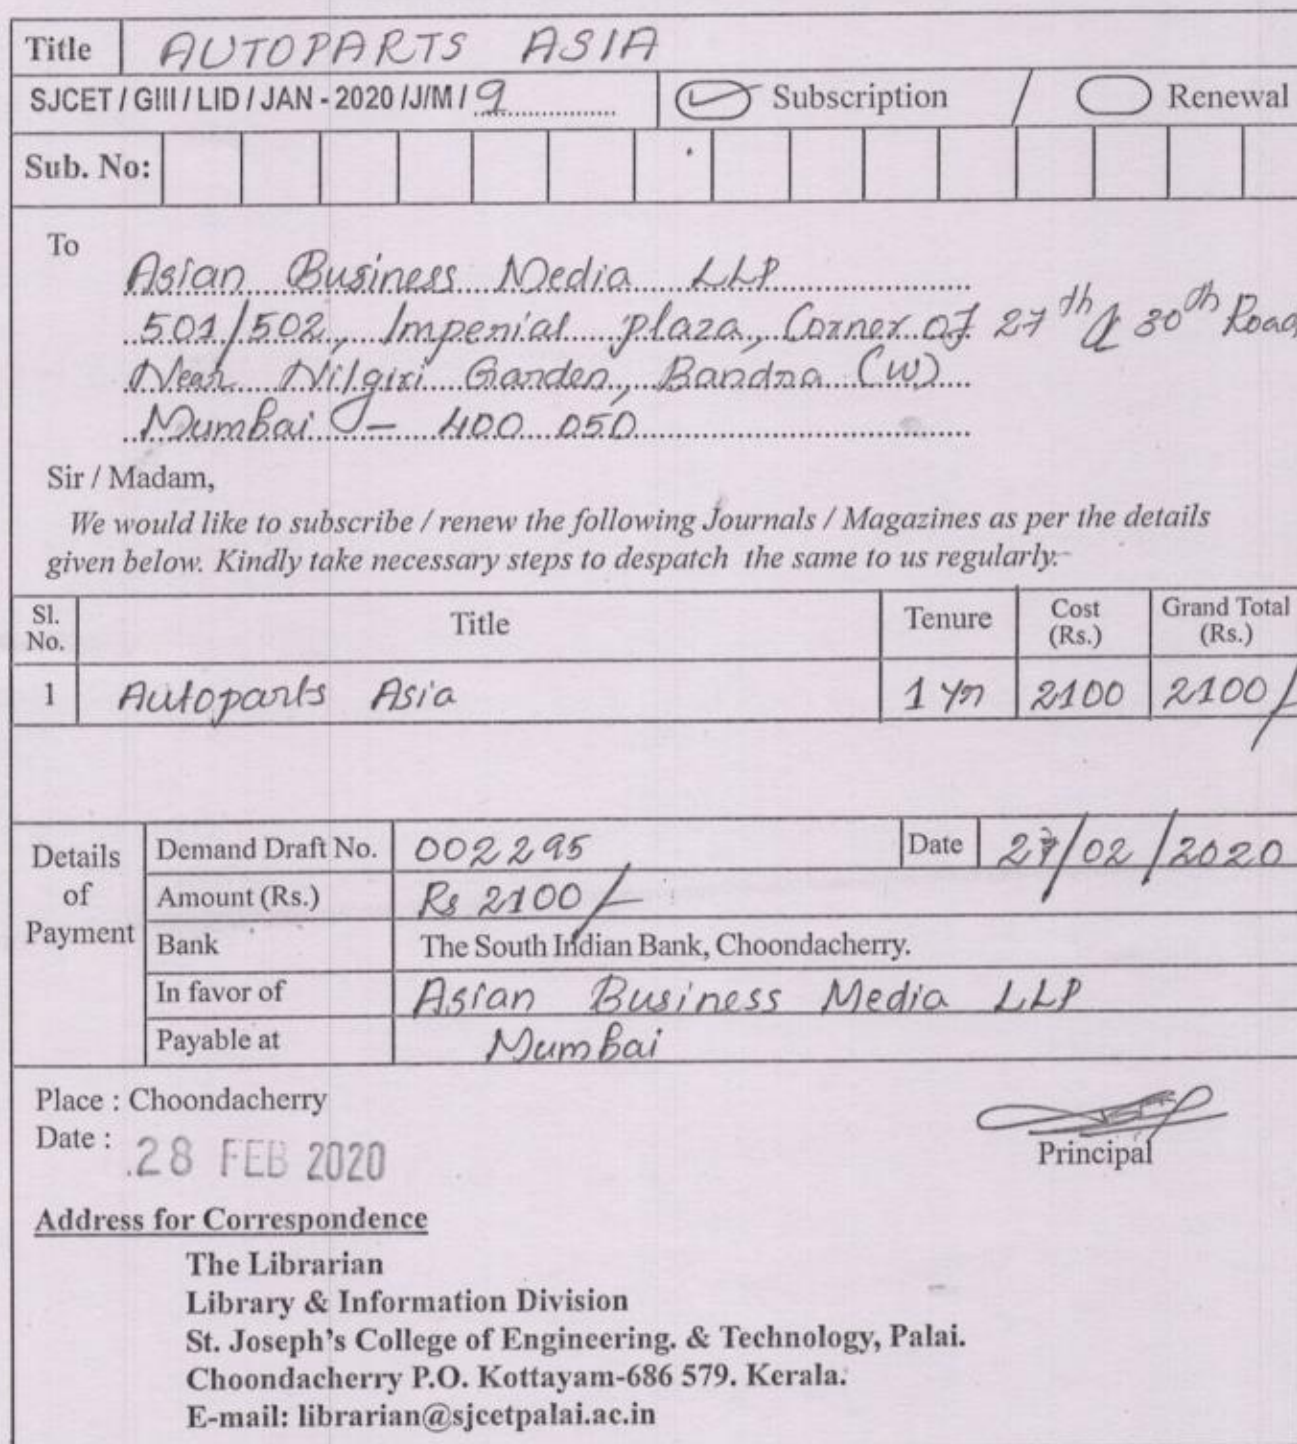 Title AUTOPARTS ASIA
SJCET / GIII / LID / JAN - 2020 /J/M / 9 Subscription / Renewal
Sub. No:
To
Asian Business Media LLP
501/502, Imperial plaza, Corner of 27th & 30th Road
Near Nilgiri Garden, Bandra (W)
Mumbai - 400 050
Sir / Madam,
We would like to subscribe / renew the following Journals / Magazines as per the details
given below. Kindly take necessary steps to despatch the same to us regularly.
Sl. No. Title Tenure Cost (Rs.) Grand Total (Rs.)
1 Autoparts Asia 1 yr 2100 2100/
Details of Payment
Demand Draft No. 002295 Date 27/02/2020
Amount (Rs.) Rs 2100/-
Bank The South Indian Bank, Choondacherry.
In favor of Asian Business Media LLP
Payable at Mumbai
Place : Choondacherry
Date : 28 FEB 2020
Principal
Address for Correspondence
The Librarian
Library & Information Division
St. Joseph's College of Engineering. & Technology, Palai.
Choondacherry P.O. Kottayam-686 579. Kerala.
E-mail: librarian@sjcetpalai.ac.in